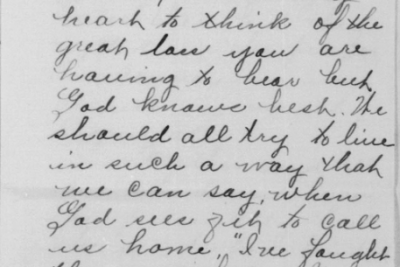 heart to think of the
great loss you are
having to bear but
God knows best. We
should all try to live
in such a way that
we can say, when
God sees fit to call
us home, "I've fought